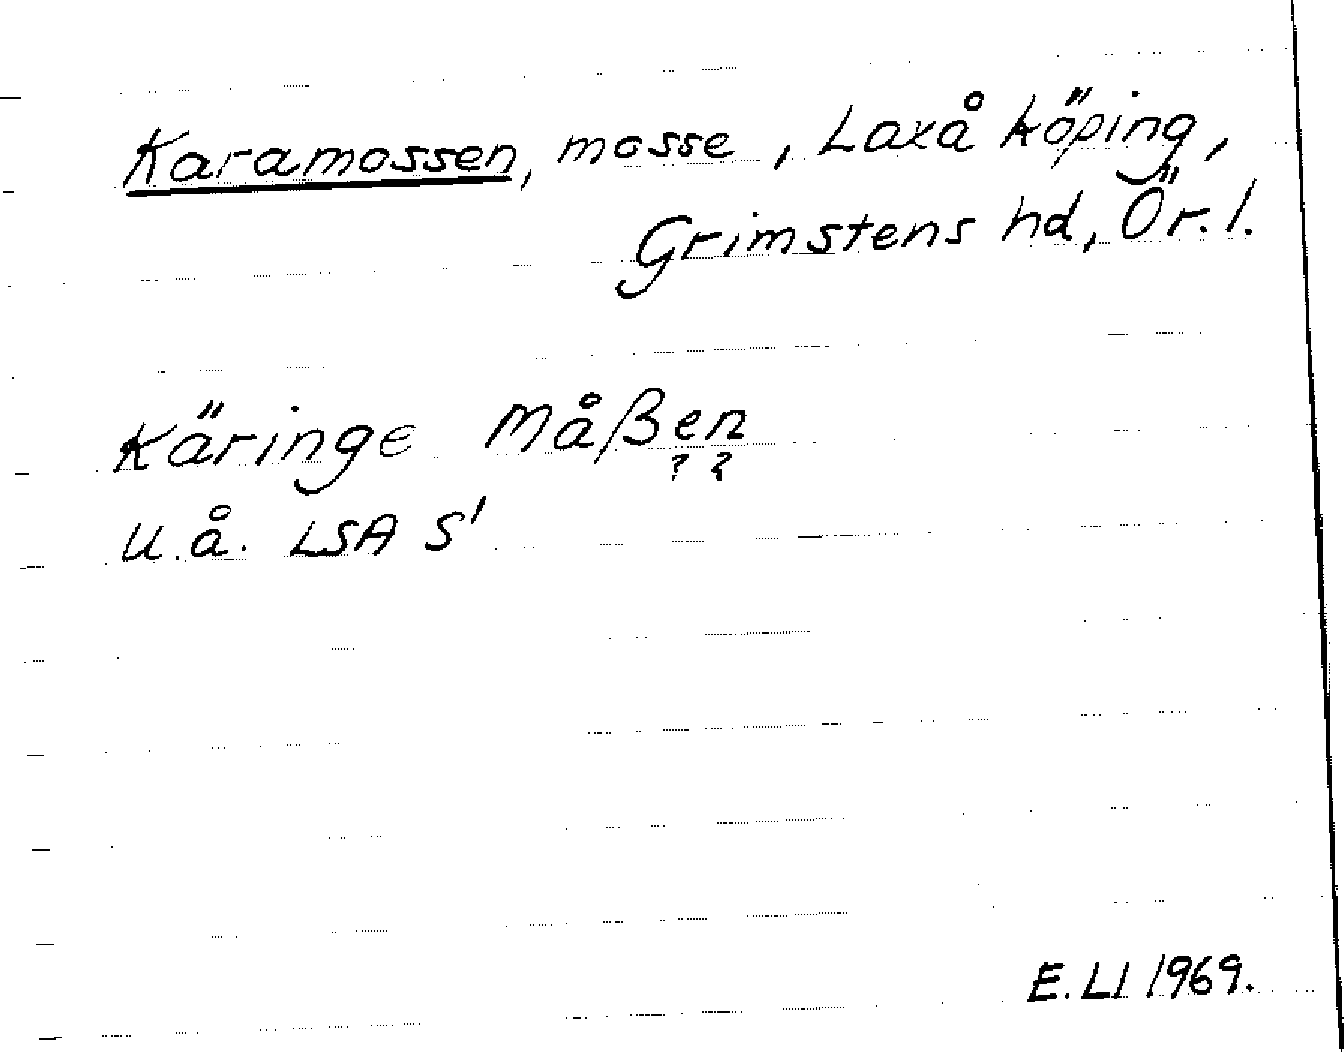 Karamossen, mosse, Laxå köping,
Grimstens hd, Ör. l.
Käringe Måßen
? ?
u. å. LSA S'
E. LI 1969.